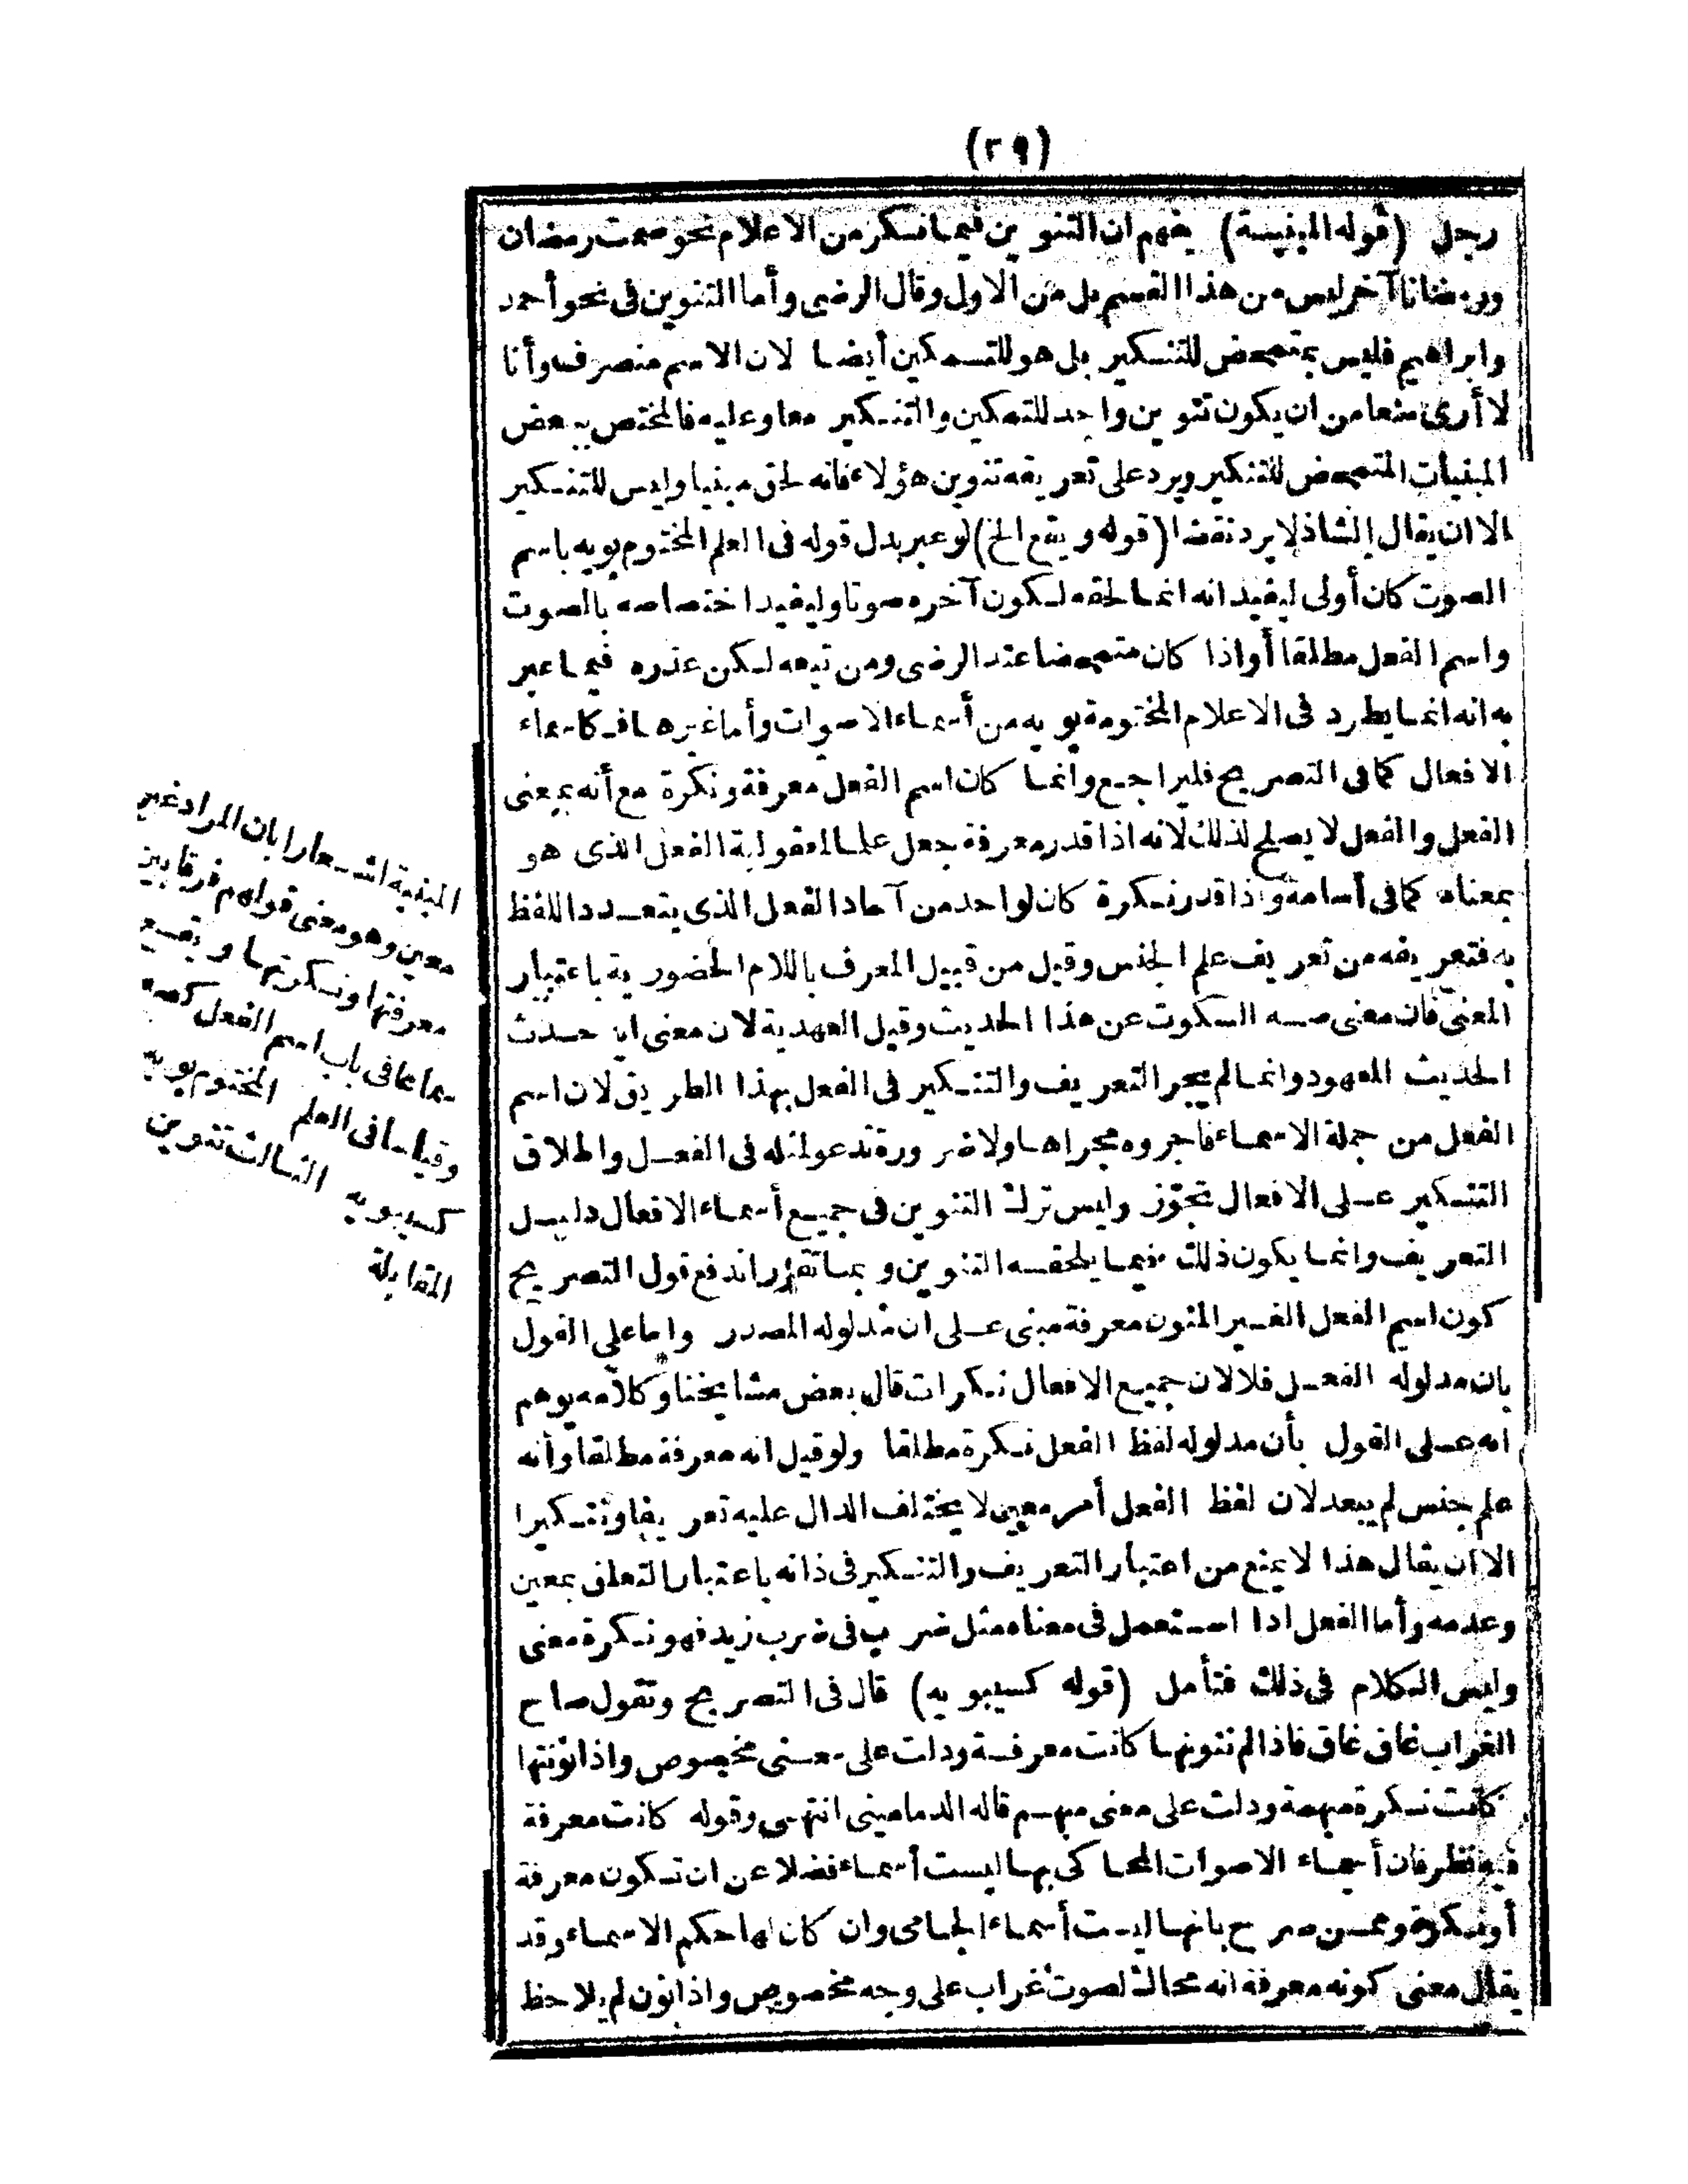 (٢٩)
رجل (قوله المبنية) يفهم ان التنوين فيما نكر من الاعلام نحو صمت رمضان
ورمضانا آخر ليس من هذا القسم بل من الاول وقال الرضى وأما التنوين فى نحو أحمد
وابراهيم فليس بمتمحض للتنكير بل هو للتمكين أيضا لان الاسم منصرف وأنا
لا أرى منعا من ان يكون تنوين واحد للتمكين والتنكير معا وعليه فالمختص ببعض
المبنيات المتمحض للتنكير ويرد على تعريفه تنوين هؤلاء فانه لحق مبنيا وليس للتنكير
الا ان يقال الشاذ لا يرد نقضا (قوله ويقع الخ) لو عبر بدل قوله فى العلم المختوم بويه باسم
الصوت كان أولى ليفيد انه انما لحقه لكون آخره صوتا وليفيد اختصاصه بالصوت
واسم الفعل مطلقا أو اذا كان متمحضا عند الرضى ومن تبعه لكن عذره فيما عبر
به انه انما يطرد فى الاعلام المختومة بويه من أسماء الاصوات وأما غيرها فكاسماء
الافعال كما فى التصريح فليراجع وانما كان اسم الفعل معرفة ونكرة مع أنه بمعنى
الفعل والفعل لا يصلح لذلك لانه اذا قدر معرفة جعل علما لمعقولية الفعل الذى هو
بمعناه كما فى أسامة واذا قدر نكرة كان لواحد من آحاد الفعل الذى يتعدد اللفظ
به فتعريفه من تعريف علم الجنس وقيل من قبيل المعرف باللام الحضورية باعتبار
المعنى فان معنى صه السكوت عن هذا الحديث وقيل العهدية لان معنى ايه حدث
الحديث المعهود وانما لم يجر التعريف والتنكير فى الفعل بهذا الطريق لان اسم
الفعل من جملة الاسماء فاجروه مجراها ولا ضرورة تدعو لمثله فى الفعل واطلاق
التنكير على الافعال تجوّز وليس ترك التنوين فى جميع أسماء الافعال دليل
التعريف وانما يكون ذلك فيما يلحقه التنوين وبما تقرر اندفع قول التصريح
كون اسم الفعل الغير المنون معرفة مبنى على ان مدلوله المصدر واما على القول
بان مدلوله الفعل فلا لان جميع الافعال نكرات قال بعض مشايخنا وكلامه يوهم
انه على القول بأن مدلوله لفظ الفعل نكرة مطلقا ولو قيل انه معرفة مطلقا وأنه
علم جنس لم يبعد لان لفظ الفعل أمر معين لا يختلف الدال عليه تعريفا وتنكيرا
الا ان يقال هذا لا يمنع من اعتبار التعريف والتنكير فى ذاته باعتبار التعلق بمعين
وعدمه وأما الفعل اذا استعمل فى معناه مثل ضرب فى ضرب زيد فهو نكرة معنى
وليس الكلام فى ذلك فتأمل (قوله كسيبويه) قال فى التصريح وتقول صاح
الغراب غاق غاق فاذا لم تنونها كانت معرفة ودلت على معنى مخصوص واذا نونتها
كانت نكرة مبهمة ودلت على معنى مبهم قاله الدمامينى انتهى وقوله كانت معرفة
فيه نظر فان أسماء الاصوات المحاكى بها ليست أسماء فضلا عن ان تكون معرفة
أو نكرة وممن صرح بانها ليست أسماء الجامى وان كان لها حكم الاسماء وقد
يقال معنى كونه معرفة انه محاك لصوت غراب على وجه مخصوص واذا نون لم يلاحظ
المبنية اشعارا بان المراد غير
معين وهو معنى قولهم فرقا بين
معرفتها ونكرتها ويقع
سماعا فى باب اسم الفعل كصه
وقياسا فى العلم المختوم بويه
كسيبويه الثالث تنوين
المقابلة